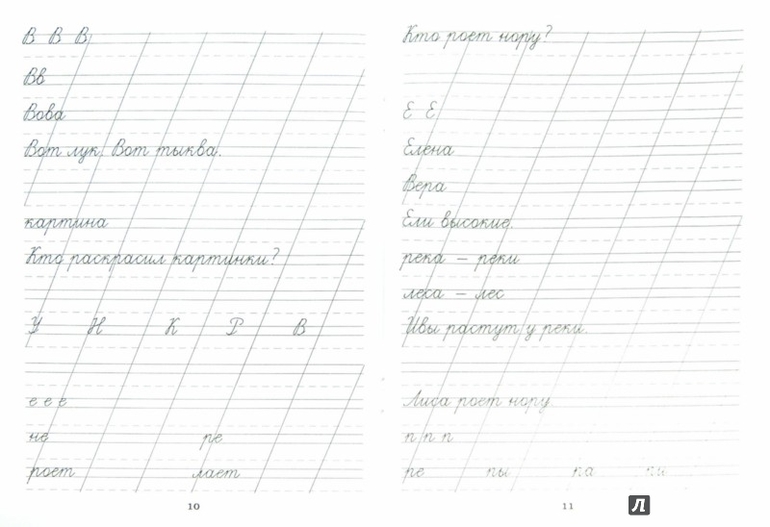 В В В
Вв
Вова
Вот лук. Вот тыква.
картина
Кто раскрасил картинки?
У Н К Р В
е е е
не ре
роет лает
10
Кто роет нору?
Е Е
Елена
Вера
Ели высокие.
река – реки
леса – лес
Ивы растут у реки.
Лиса роет нору.
п п п
ре пы па пи
11
Л